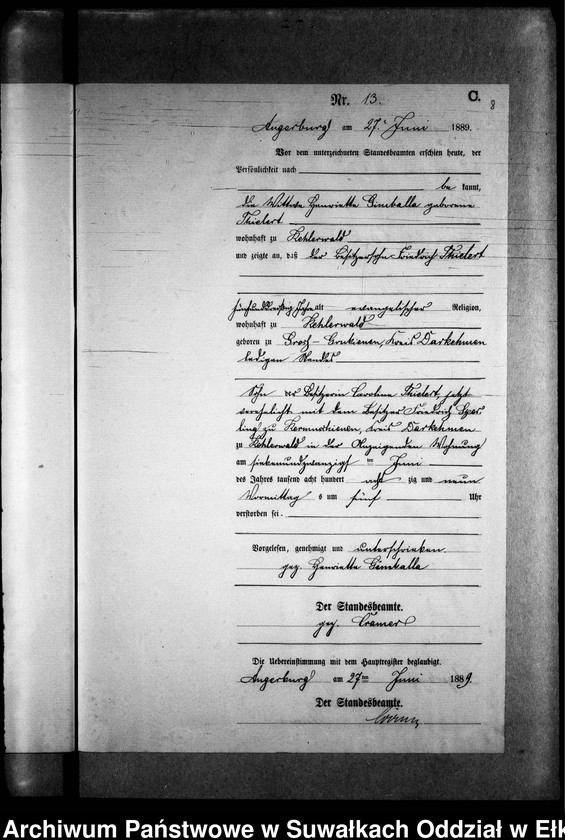 Nr. 13.
C.
8
Angerburg am 27. Juni 1889.
Vor dem unterzeichneten Standesbeamten erschien heute, der
Persönlichkeit nach
be kannt,
die Wittwe Henriette Gimballa geborene
Thielert
wohnhaft zu Kehlerwald
und zeigte an, daß der Besitzersohn Friedrich Thielert
fünfunddreißig Jahre alt evangelischer Religion,
wohnhaft zu Kehlerwald
geboren zu Kreis Darkehmen
ledigen Standes
Sohn der Besitzerin Caroline Thielert, jetzt
verehelicht mit dem Besitzer Friedrich
zu Kreis Darkehmen
zu Kehlerwald in der Anzeigenden Wohnung
am siebenundzwanzigsten Juni
des Jahres tausend acht hundert acht zig und neun
Vormittags um fünf Uhr
verstorben sei.
Vorgelesen, genehmigt und unterschrieben
gez. Henriette Gimballa
Der Standesbeamte.
gez. Cramer
Die Uebereinstimmung mit dem Hauptregister beglaubigt.
Angerburg am 27ten Juni 1889.
Der Standesbeamte.
Archiwum Państwowe w Suwałkach Oddział w Ełk